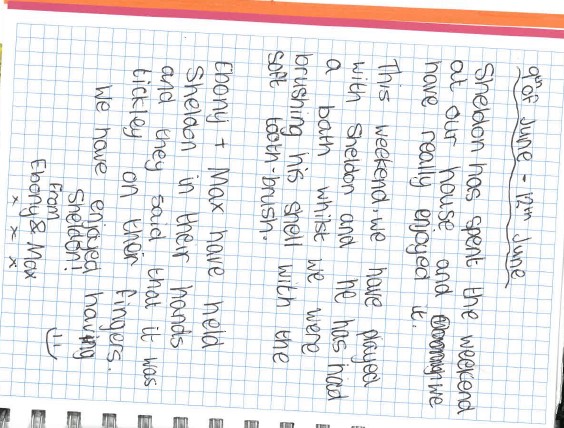 9th of June - 12th June
Sheldon has spent the weekend
at our house and we
have really enjoyed it.
This weekend, we have played
with Sheldon and he has had
a bath whilst we were
brushing his shell with the
soft tooth-brush.
Ebony + Max have held
Sheldon in their hands
and they said that it was
tickley on their fingers.
We have enjoed having
Sheldon!
from
Ebony & Max
x x x